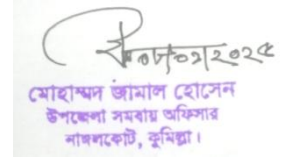 ০৮/০১/২০২৫
মোহাম্মদ জামাল হোসেন
উপজেলা সমবায় অফিসার
নাঙ্গলকোট, কুমিল্লা।